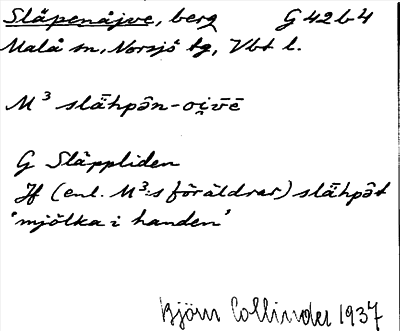 Släpenåjve, berg G 42 b 4
Malå sn, Norsjö tg, Vbt l.
M³ slähpān-oi̯vē
G Släppliden
Jf (enl. M³:s föräldrar) slähpāt
'mjölka i handen'
Björn Collinder 1937